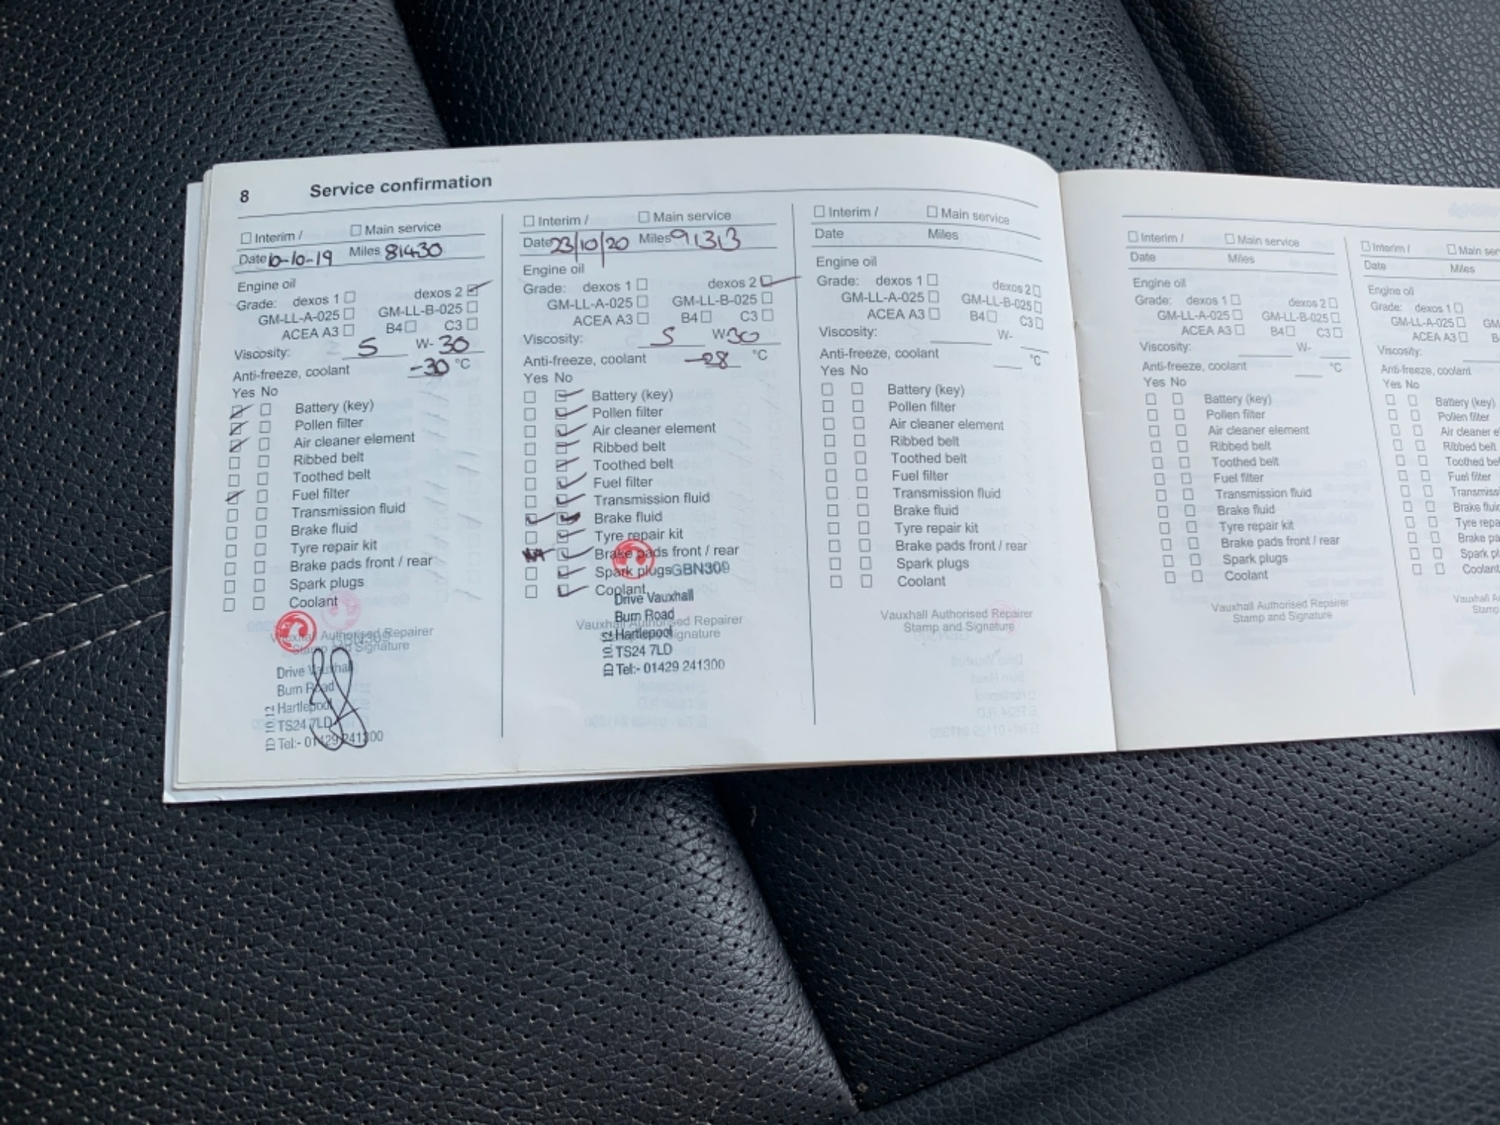 8 Service confirmation
Interim / Main service
Date 10-10-19 Miles 81430
Engine oil
Grade: dexos 1 dexos 2
GM-LL-A-025 GM-LL-B-025
ACEA A3 B4 C3
Viscosity: 5 W- 30
Anti-freeze, coolant -30 °C
Yes No
Battery (key)
Pollen filter
Air cleaner element
Ribbed belt
Toothed belt
Fuel filter
Transmission fluid
Brake fluid
Tyre repair kit
Brake pads front / rear
Spark plugs
Coolant
Vauxhall Authorised Repairer
Stamp and Signature
Drive Vauxhall
Burn Road
Hartlepool
TS24 7LD
Tel:- 01429 241300
Interim / Main service
Date 23/10/20 Miles 91313
Engine oil
Grade: dexos 1 dexos 2
GM-LL-A-025 GM-LL-B-025
ACEA A3 B4 C3
Viscosity: 5 W- 30
Anti-freeze, coolant -28 °C
Yes No
Battery (key)
Pollen filter
Air cleaner element
Ribbed belt
Toothed belt
Fuel filter
Transmission fluid
Brake fluid
Tyre repair kit
Brake pads front / rear
Spark plugs GBN309
Coolant
Drive Vauxhall
Burn Road
Vauxhall Authorised Repairer
Hartlepool
Signature
TS24 7LD
Tel:- 01429 241300
Interim / Main service
Date Miles
Engine oil
Grade: dexos 1 dexos 2
GM-LL-A-025 GM-LL-B-025
ACEA A3 B4 C3
Viscosity: W-
Anti-freeze, coolant °C
Yes No
Battery (key)
Pollen filter
Air cleaner element
Ribbed belt
Toothed belt
Fuel filter
Transmission fluid
Brake fluid
Tyre repair kit
Brake pads front / rear
Spark plugs
Coolant
Vauxhall Authorised Repairer
Stamp and Signature
Interim / Main service
Date Miles
Engine oil
Grade: dexos 1 dexos 2
GM-LL-A-025 GM-LL-B-025
ACEA A3 B4 C3
Viscosity: W-
Anti-freeze, coolant °C
Yes No
Battery (key)
Pollen filter
Air cleaner element
Ribbed belt
Toothed belt
Fuel filter
Transmission fluid
Brake fluid
Tyre repair kit
Brake pads front / rear
Spark plugs
Coolant
Vauxhall Authorised Repairer
Stamp and Signature
Interim / Main ser
Date Miles
Engine oil
Grade: dexos 1
GM-LL-A-025 GM
ACEA A3 B
Viscosity:
Anti-freeze, coolant
Yes No
Battery (key)
Pollen filter
Air cleaner e
Ribbed belt
Toothed be
Fuel filter
Transmiss
Brake fluid
Tyre repa
Brake pa
Spark pl
Coolant
Vauxhall A
Stamp